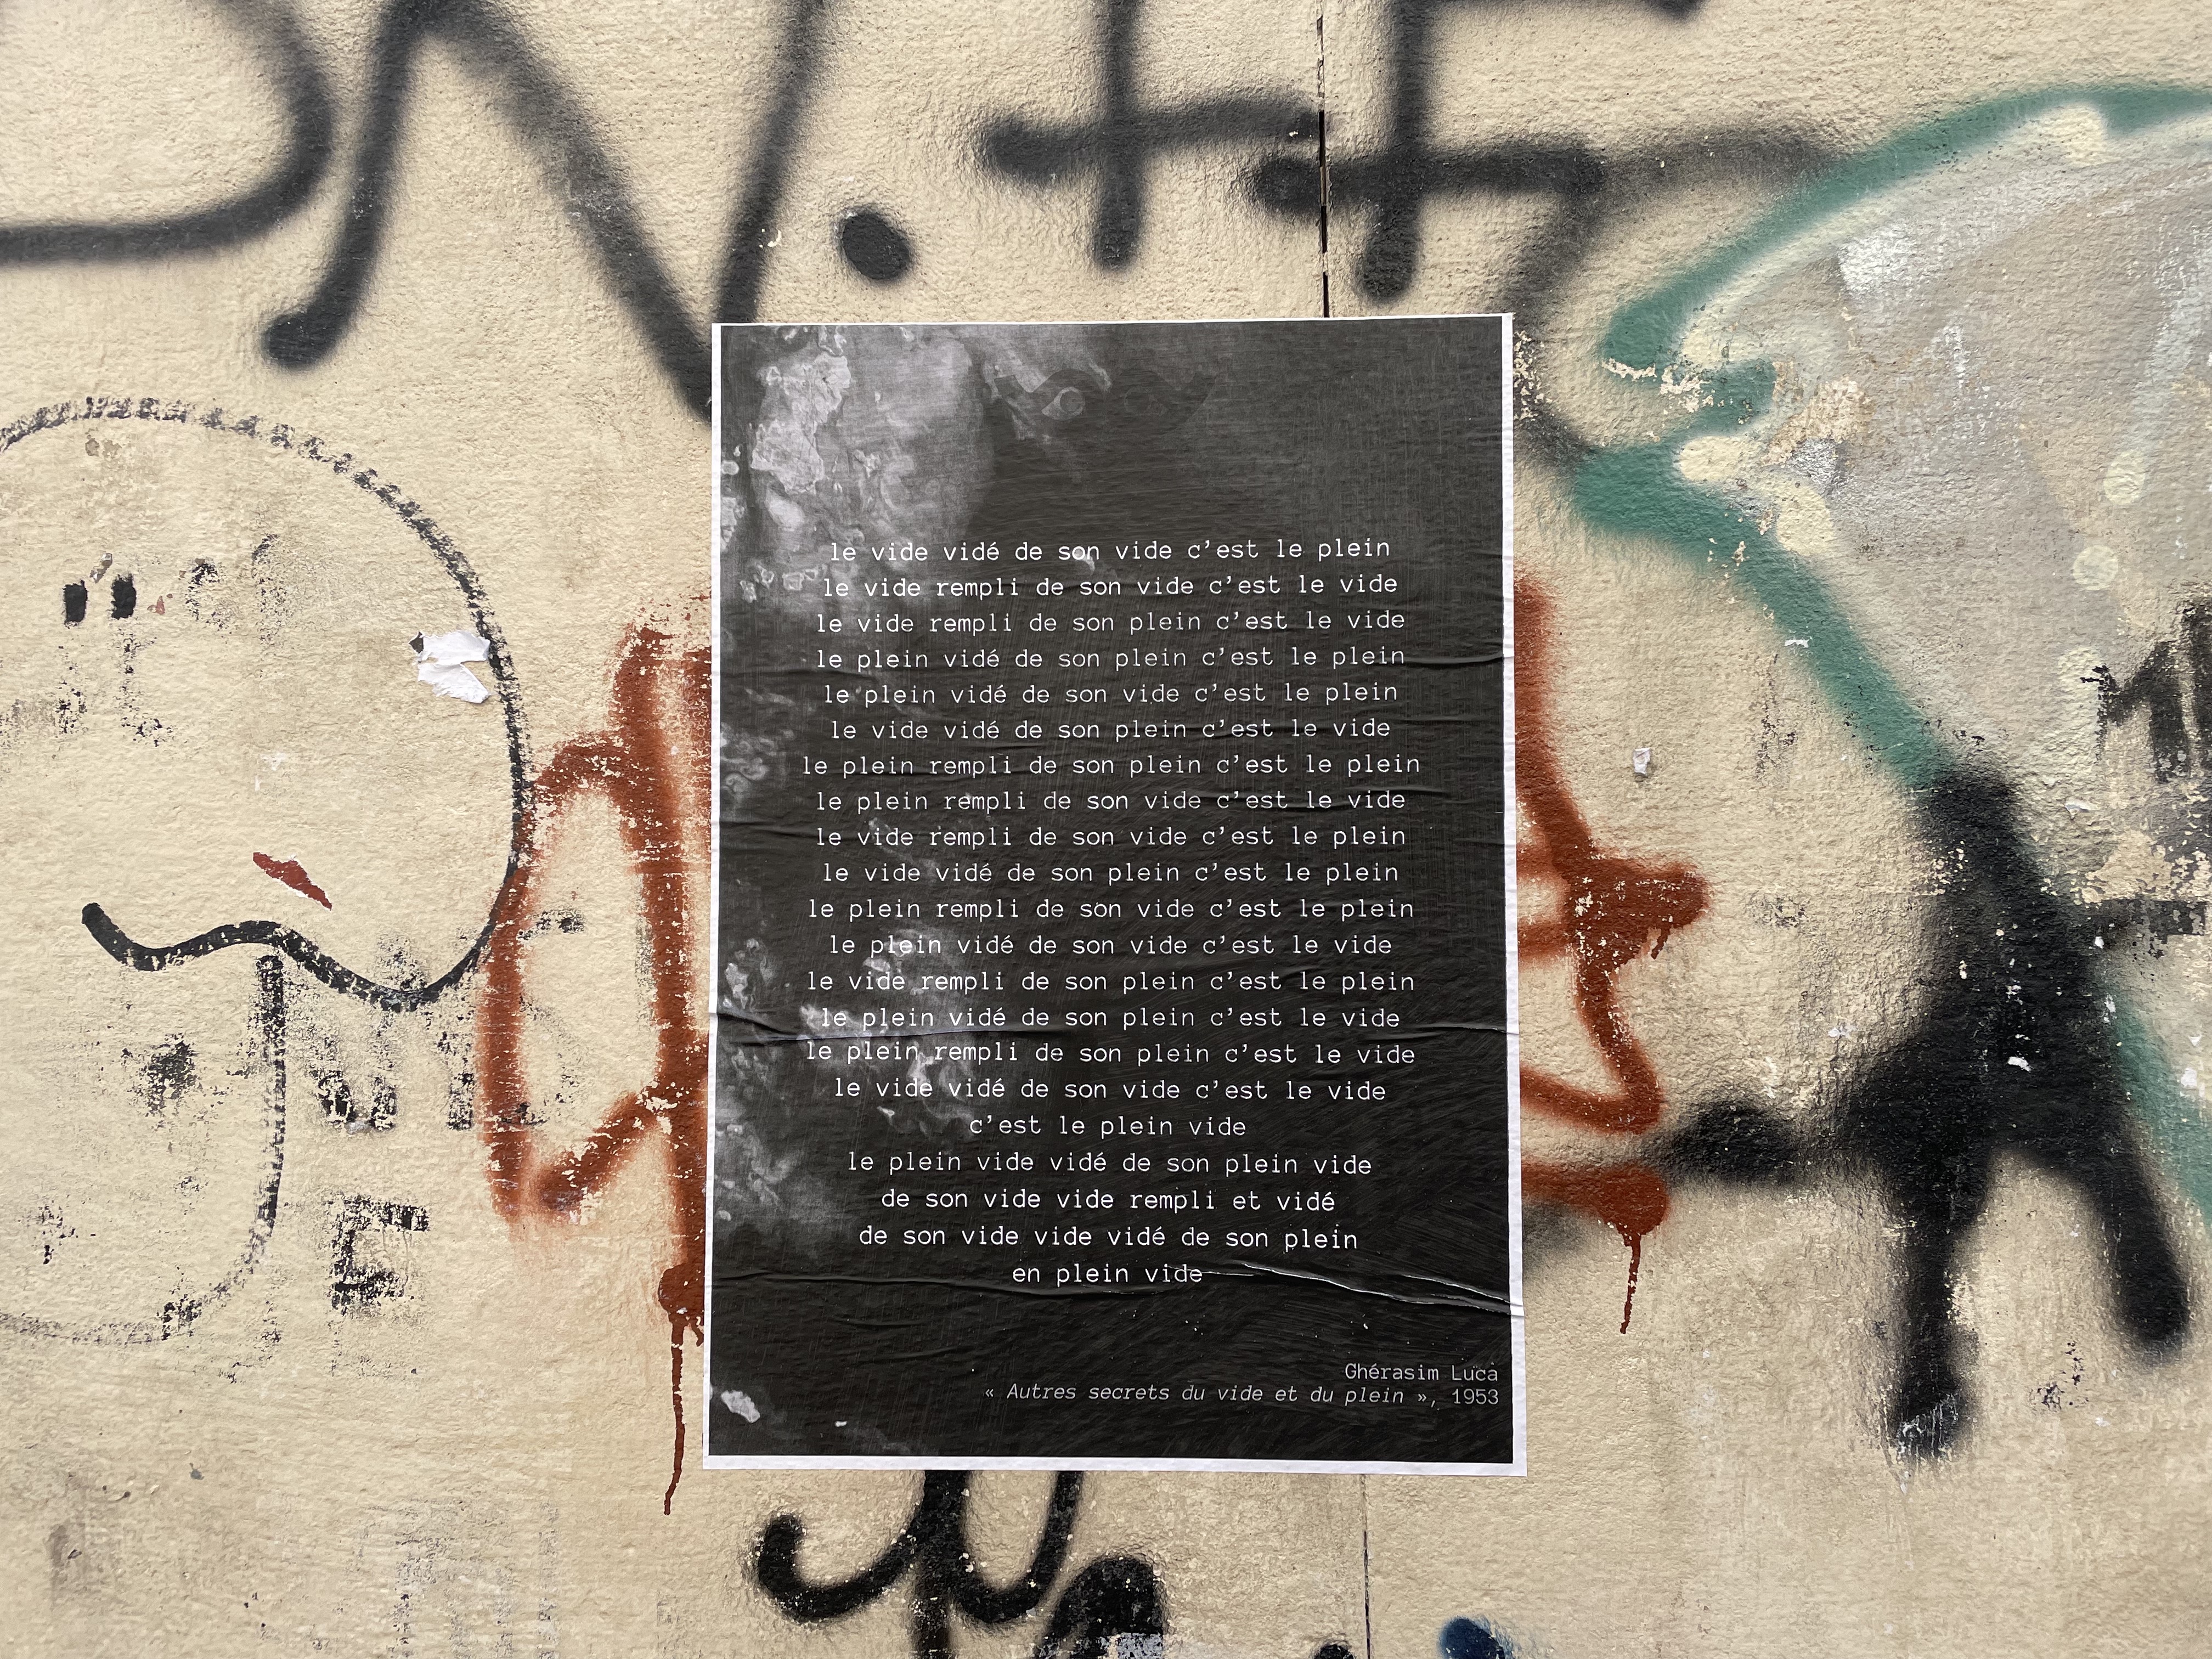 le vide vidé de son vide c'est le plein
le vide rempli de son vide c'est le vide
le vide rempli de son plein c'est le vide
le plein vidé de son plein c'est le plein
le plein vidé de son vide c'est le plein
le vide vidé de son plein c'est le vide
le plein rempli de son plein c'est le plein
le plein rempli de son vide c'est le vide
le vide rempli de son vide c'est le plein
le vide vidé de son plein c'est le plein
le plein rempli de son vide c'est le plein
le plein vidé de son vide c'est le vide
le vide rempli de son plein c'est le plein
le plein vidé de son plein c'est le vide
le plein rempli de son plein c'est le vide
le vide vidé de son vide c'est le vide
c'est le plein vide
le plein vide vidé de son plein vide
de son vide vide rempli et vidé
de son vide vide vidé de son plein
en plein vide
Ghérasim Luca
« Autres secrets du vide et du plein », 1953